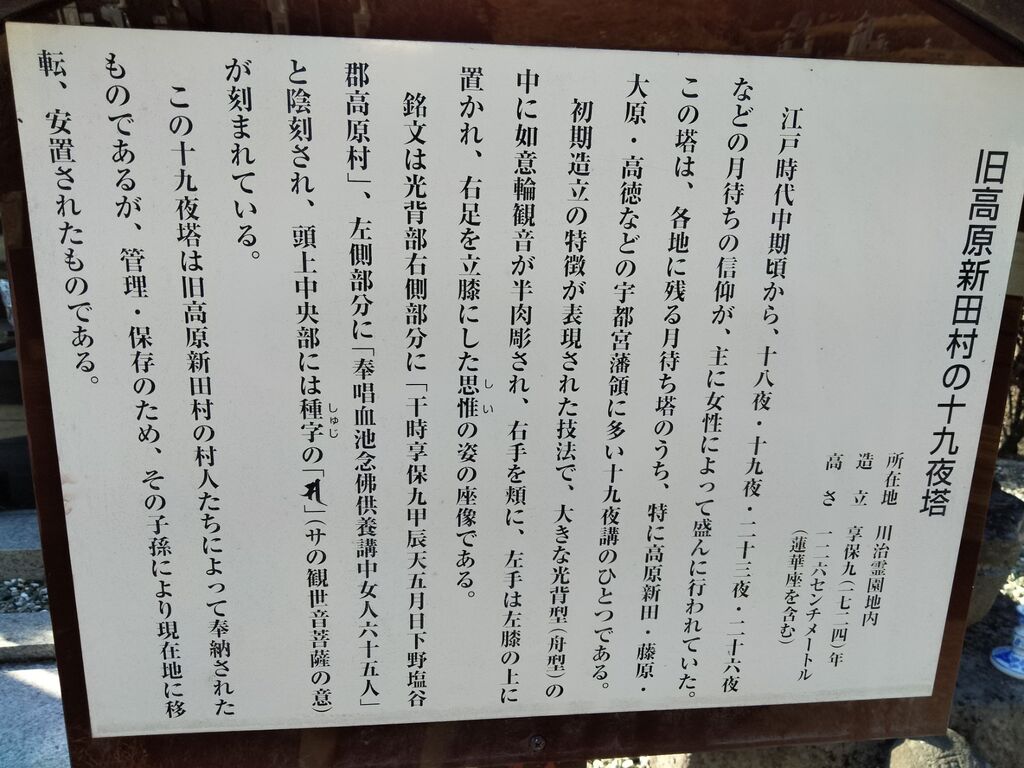 旧高原新田村の十九夜塔
所在地　川治霊園地内
造　立　享保九(一七二四)年
高　さ　一二六センチメートル
(蓮華座を含む)
江戸時代中期頃から、十八夜・十九夜・二十三夜・二十六夜
などの月待ちの信仰が、主に女性によって盛んに行われていた。
この塔は、各地に残る月待ち塔のうち、特に高原新田・藤原・
大原・高徳などの宇都宮藩領に多い十九夜講のひとつである。
初期造立の特徴が表現された技法で、大きな光背型(舟型)の
中に如意輪観音が半肉彫され、右手を頬に、左手は左膝の上に
置かれ、右足を立膝にした思惟の姿の座像である。
しい
銘文は光背部右側部分に「干時享保九甲辰天五月日下野塩谷
郡高原村」、左側部分に「奉唱血池念佛供養講中女人六十五人」
と陰刻され、頭上中央部には種字の「」(サの観世音菩薩の意)
しゅじ
が刻まれている。
この十九夜塔は旧高原新田村の村人たちによって奉納された
ものであるが、管理・保存のため、その子孫により現在地に移
転、安置されたものである。